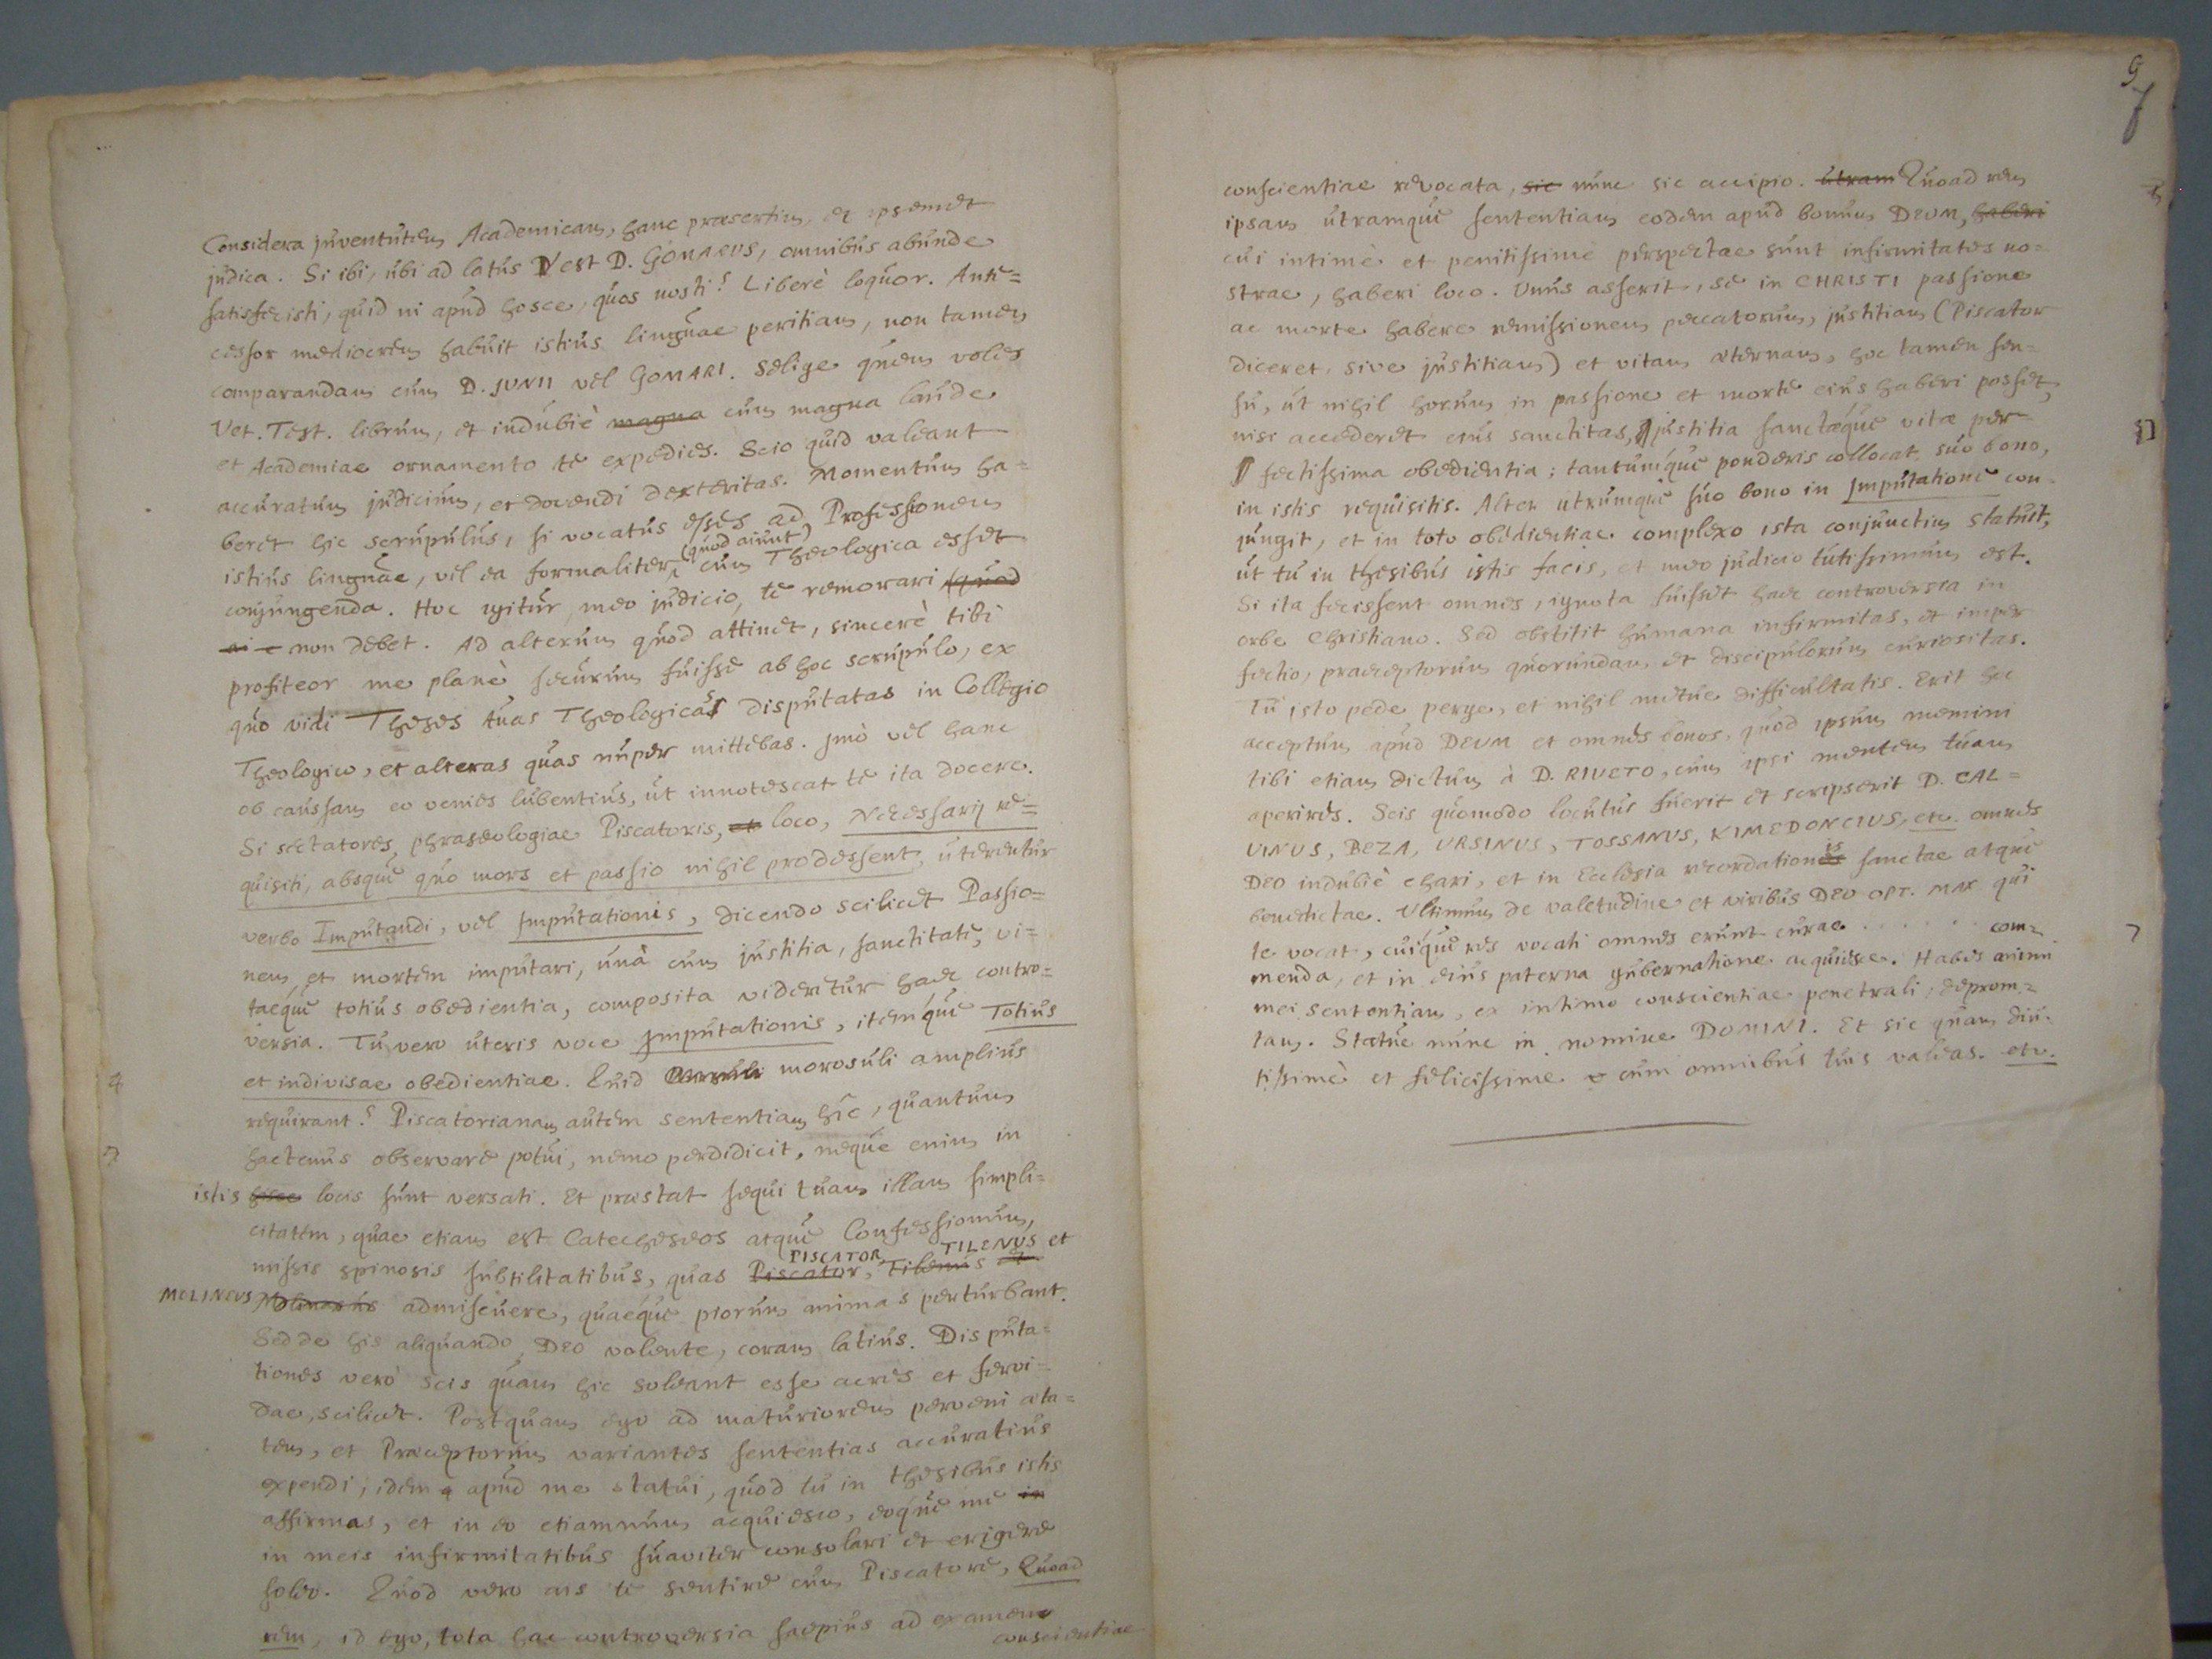 Considera juventutem Academicam, hanc praesertim, et ipsemet
judica. Si ibi, ubi ad latus est D. GOMARUS, omnibus abunde
satisfecisti, quid ni apud hosce, quos nosti? Liberè loquor. Ante=
cessor mediocrem habuit istius linguae peritiam, non tamen
comparandam cum D. JUNII vel GOMARI. Selige quem voles
Vet. Test. librum, et indubiè magna cum magna laude
et Academiae ornamento te expedies. Scio quid valeant
accuratum judicium, et docendi dexteritas. Momentum ha=
beret hic scrupulus, si vocatus esses ad Professionem
istius linguae, vel ea formaliter (quod aiunt) cum Theologica esset
conjungenda. Hoc igitur, meo judicio, te remorari (quod
ai non debet. Ad alterum quod attinet, sincerè tibi
profiteor me planè securum fuisse ab hoc scrupulo, ex
quo vidi Theses tuas Theologicas disputatas in Collegio
Theologico, et alteras quas nuper mittebas. Jmò vel hanc
ob caussam eo venies lubentius, ut innotescat te ita docere.
Si sectatores phraseologiae Piscatoris, et loco, Necessarij re=
quisiti, absque quo mors et passio nihil prodessent, uterentur
verbo Imputandi, vel Imputationis, dicendo scilicet Passio=
nem et mortem imputari, unà cum justitia, sanctitate, vi=
taeque totius obedientia, composita videretur haec contro=
versia. Tu vero uteris voce Imputationis, itemque Totius
et indivisae obedientiae. Quid morosuli amplius
requirant? Piscatorianam autem sententiam hîc, quantum
hactenus observare potui, nemo perdidicit, neque enim in
istis hisce locis sunt versati. Et praestat sequi tuam illam simpli=
citatem, quae etiam est Catecheseos atque Confessionum,
missis spinosis subtilitatibus, quas Piscator, PISCATOR Tilenus TILENUS et
MOLINEUS Molinaeus admiscuere, quaeque piorum animas perturbant.
Sed de his aliquando, DEO volente, coram latius. Disputa=
tiones verò scis quam hic soleant esse acres et fervi=
dae, scilicet. Postquam ego ad maturiorem perveni aeta=
tem, et Praeceptorum variantes sententias accuratius
expendi, idem apud me statui, quod tu in thesibus istis
affirmas, et in eo etiamnum acquiesco, eoque me in
in meis infirmitatibus suaviter consolari et erigere
soleo. Quod vero ais te sentire cum Piscatore, Quoad
rem, id ego, tota hac controversia saepius ad examen
conscientiae
9
7
conscientiae revocata, sic nunc sic accipio. utram Quoad rem
ipsam utramque sententiam eodem apud bonum DEUM, haberi
cui intimè et penitissimè perspectae sunt infirmitates no=
strae, haberi loco. Unus asserit, se in CHRISTI passione
ac morte habere remissionem peccatorum, justitiam (Piscator
diceret, sive justitiam) et vitam aeternam, hoc tamen sen=
su, ut nihil horum in passione et morte eius haberi posset,
nisi accederet eius sanctitas, justitia sanctaeque vitae per=
fectissima obedientia; tantumque ponderis collocat suo bono,
in istis requisitis. Alter utrumque suo bono in Jmputatione con=
jungit, et in toto obedientiae complexo ista conjunctim statuit,
ut tu in thesibus istis facis, et meo judicio tutissimum est.
Si ita fecissent omnes, ignota fuisset haec controversia in
orbe Christiano. Sed obstitit humana infirmitas, et imper
fectio, praeceptorum quorundam et discipulorum curiositas.
Tu isto pede perge, et nihil metue difficultatis. Erit hoc
acceptum apud DEUM et omnes bonos, quod ipsum memini
tibi etiam dictum à D. RIVETO, cum ipsi mentem tuam
aperires. Scis quomodo locutus fuerit et scripserit D. CAL=
VINUS, BEZA, URSINUS, TOSSANUS, KIMEDONCIUS, etc. omnes
DEO indubiè chari, et in Ecclesia recordationis sanctae atque
benedictae. Ultimum de valetudine et viribus DEO OPT. MAX qui
te vocat, cuique res vocati omnes erunt curae . . . . . . com=
menda, et in eius paterna gubernatione acquiesce. Habes animi
mei sententiam, ex intimo conscientiae penetrali, deprom=
tam. Statue nunc in nomine DOMINI. Et sic quam diu=
tissimè et felicissime cum omnibus tuis valeas. etc.